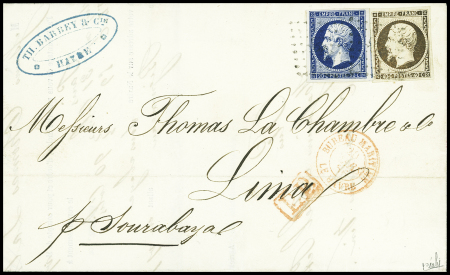 TH. BARBEY & Cie
HAVRE
EMPIRE FRANC.
20 c. POSTES 20 c.
EMPIRE FRANC.
Messieurs Thomas La Chambre & Co
Lima
p Sourabaya